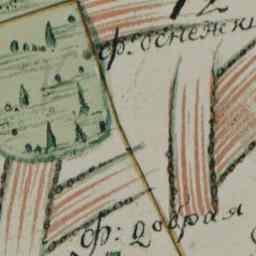 12
ф:оснежки
ф: добрая